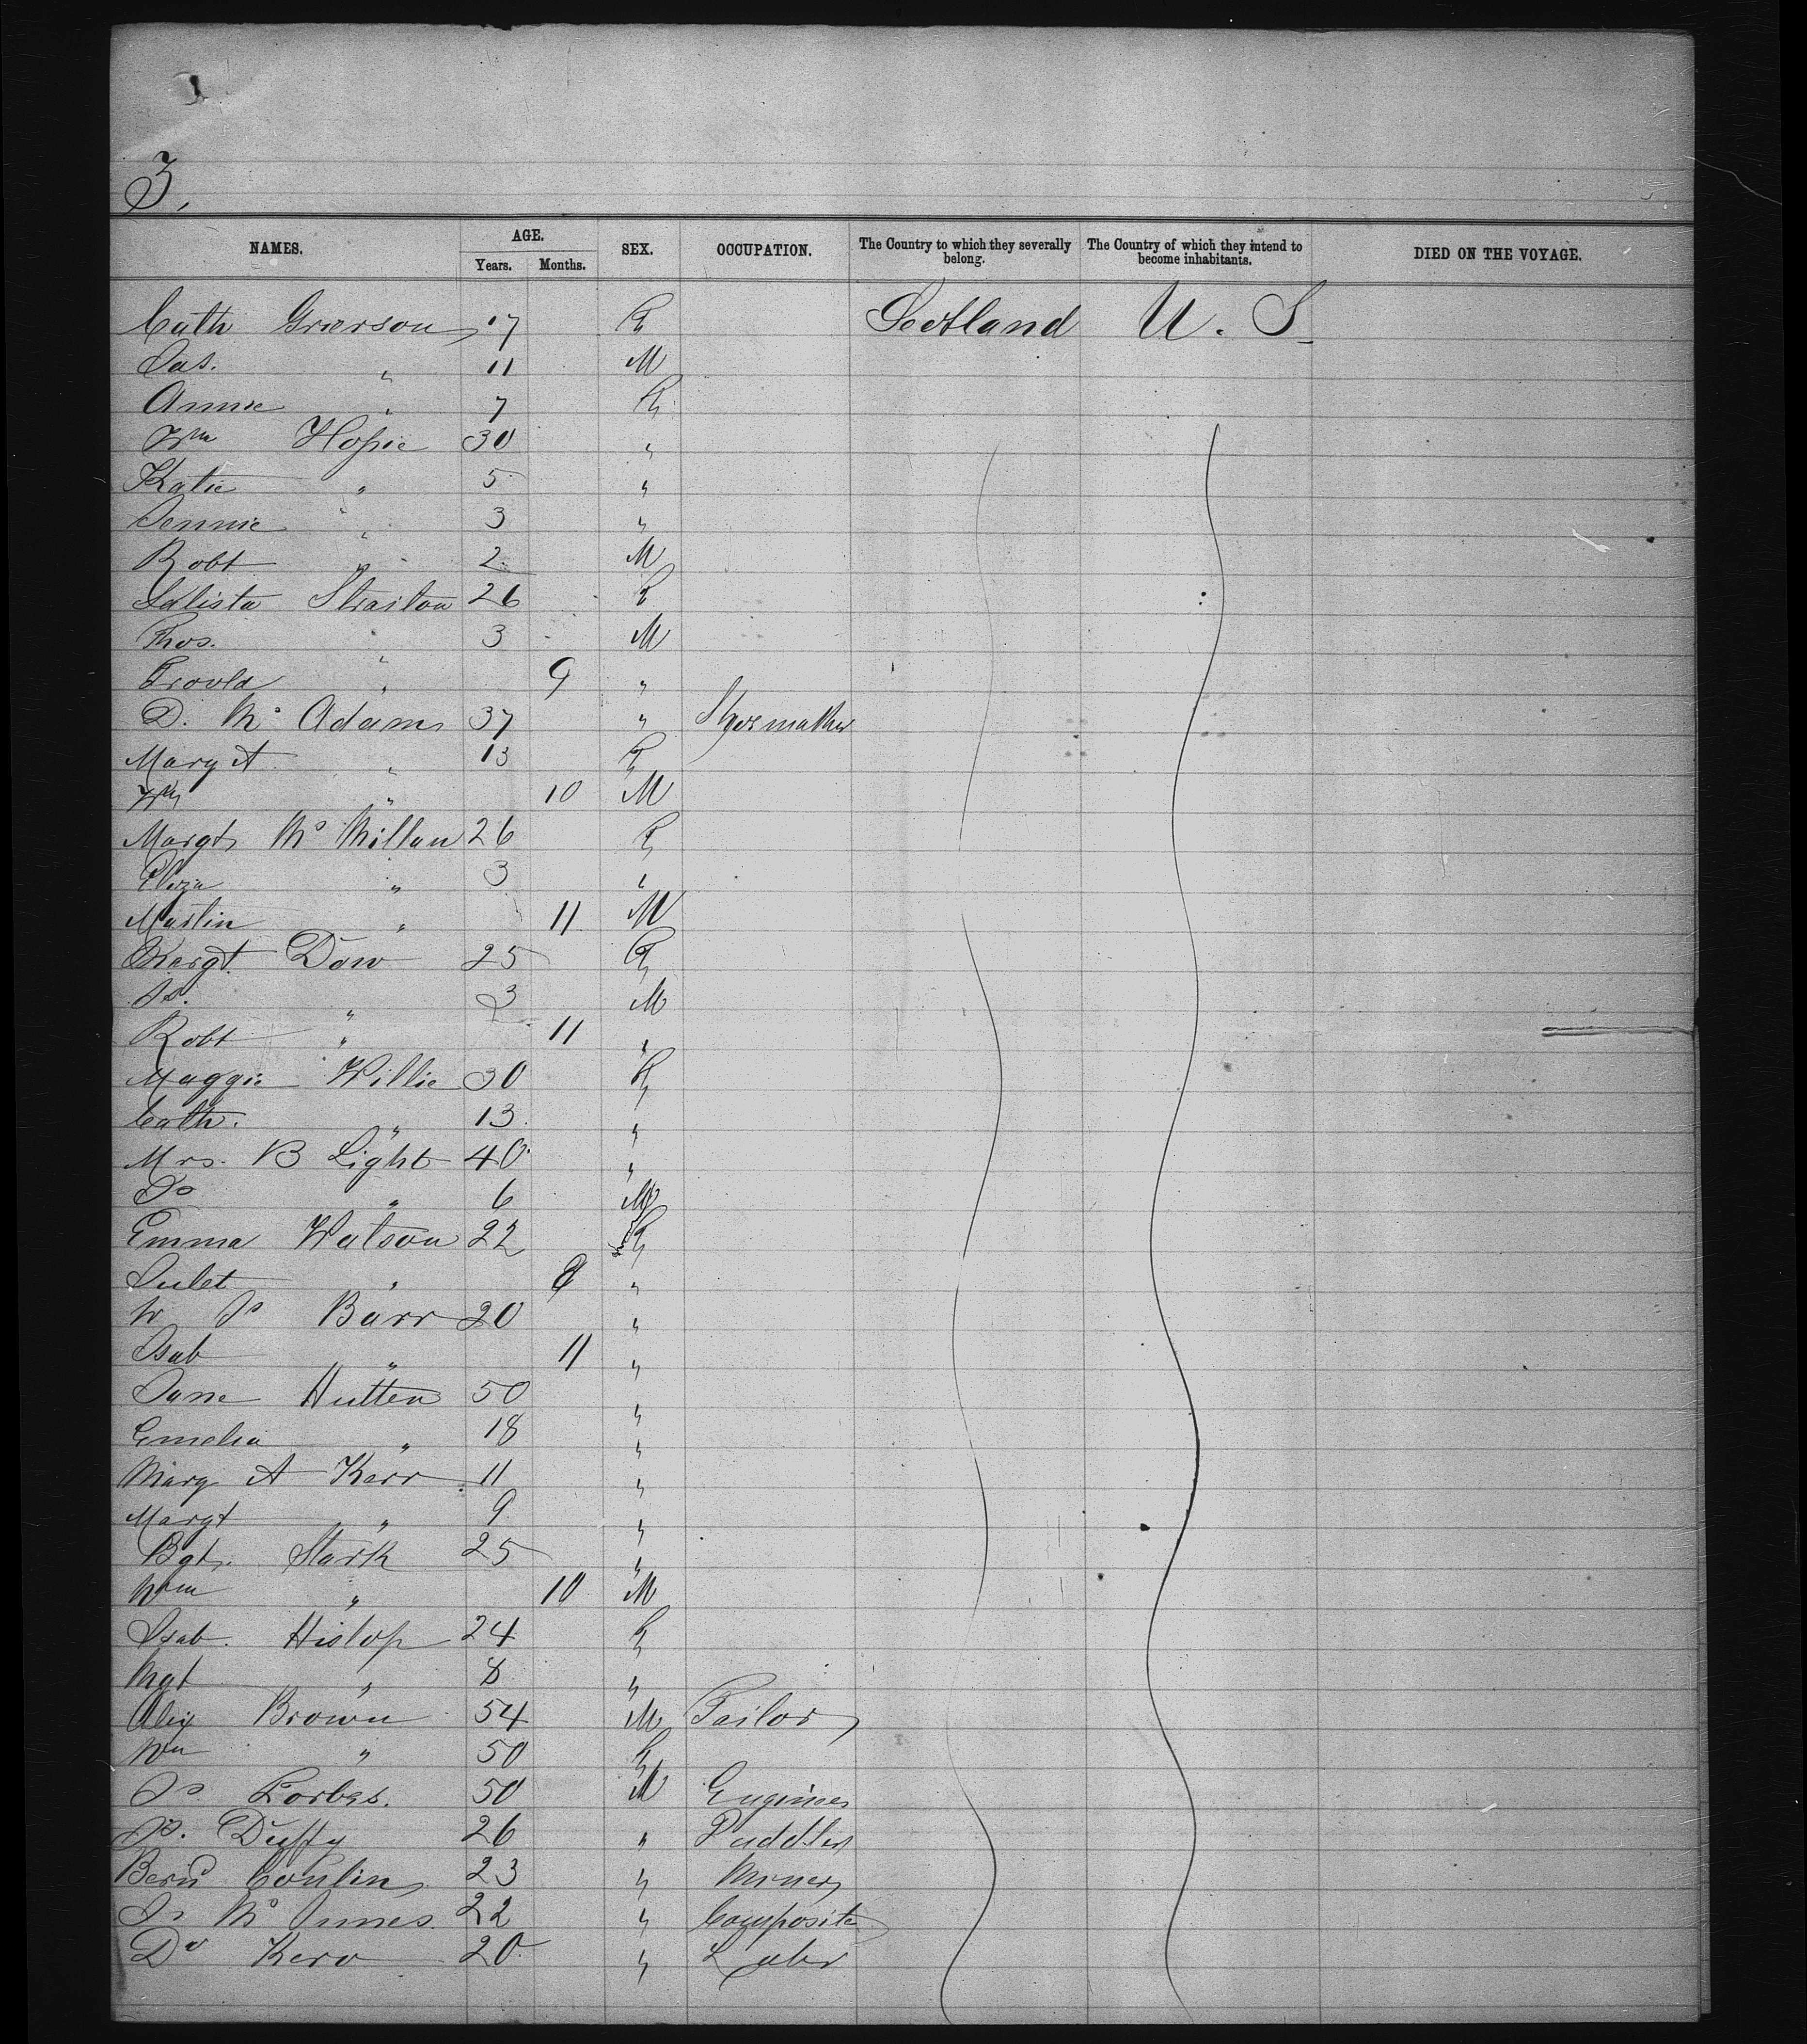 3.
NAMES. AGE. Years. Months. SEX. OCCUPATION. The Country to which they severally belong. The Country of which they intend to become inhabitants. DIED ON THE VOYAGE.
Cath Grierson 17 F Scotland U. S.
Jas. " 11 M
Annie " 7 F
Wm Hopie 30 "
Katie " 5 "
Jennie " 3 "
Robt " 2 M
Straiton 26 F
Thos. " 3 M
" 9 "
D. Mc Adam 37 " Shoemaker
Mary A " 13 F
Wm " 10 M
Margt Mc Millan 26 F
Eliza " 3 "
Martin " 11 M
Margt Dow 25 F
Jo. " 3 M
Robt " 11 "
Maggie Willie 30 F
Cath. " 13 "
Mrs. B Light 40 "
Jo " 6 M
Emma Watson 22 F
" 8 "
W Jo Barr 20 "
Isab " 11 "
Jane Hutten 50 "
Emelia " 18 "
Mary A Kerr 11 "
Margt " 9 "
Bgt. Stark 25 "
Wm " 10 M
Isab. Hislop 24 F
Mgt " 8 "
Alex Brown 54 M Tailor
Wn " 50 F
Jo. Forbes. 50 M Engineer
Jo. Duffy 26 " Puddler
Bernd Conlin 23 " Miner
Jo Mc Innes. 22 " Composite
Do Kerr 20 " Labr